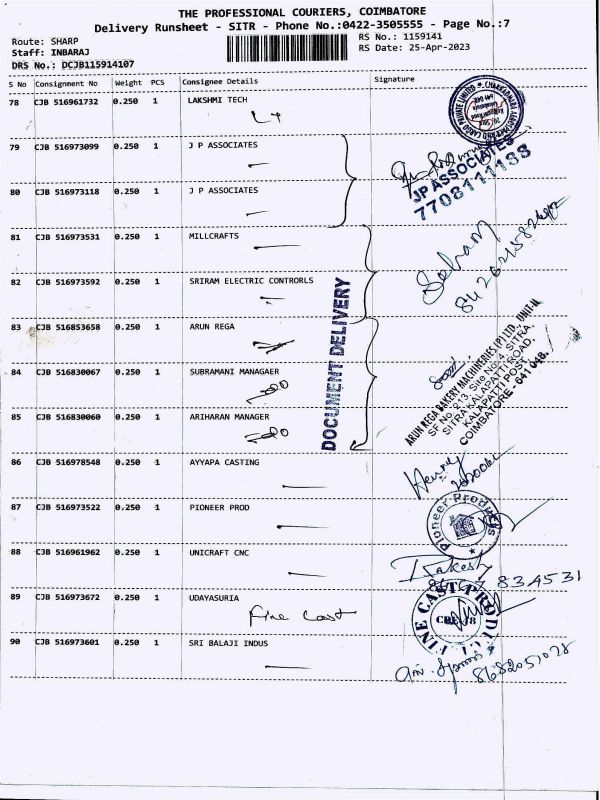 THE PROFESSIONAL COURIERS, COIMBATORE
Delivery Runsheet - SITR - Phone No.:0422-3505555 - Page No.:7
Route: SHARP
Staff: INBARAJ
DRS No.: DCJB115914107
RS No.: 1159141
RS Date: 25-Apr-2023
S No Consignment No Weight PCS Consignee Details Signature
78 CJB 516961732 0.250 1 LAKSHMI TECH
79 CJB 516973099 0.250 1 J P ASSOCIATES
JP ASSOCIATES
7708111188
80 CJB 516973118 0.250 1 J P ASSOCIATES
81 CJB 516973531 0.250 1 MILLCRAFTS
82 CJB 516973592 0.250 1 SRIRAM ELECTRIC CONTRORLS
DOCUMENT DELIVERY
83 CJB 516853658 0.250 1 ARUN REGA
ARUN REGA BAKERY MACHINERIES (P) LTD., UNIT-II
SF No. 213, Site No. 4, SITRA,
SITRA KALAPATTI ROAD,
KALAPATTI POST,
COIMBATORE - 641 048.
84 CJB 516830067 0.250 1 SUBRAMANI MANAGAER
85 CJB 516830060 0.250 1 ARIHARAN MANAGER
86 CJB 516978548 0.250 1 AYYAPA CASTING
Henry
87 CJB 516973522 0.250 1 PIONEER PROD
Pioneer Products
88 CJB 516961962 0.250 1 UNICRAFT CNC
Rakesh
89 CJB 516973672 0.250 1 UDAYASURIA
Fine Cast
FINE CAST PRODUCTS
90 CJB 516973601 0.250 1 SRI BALAJI INDUS
8682051028